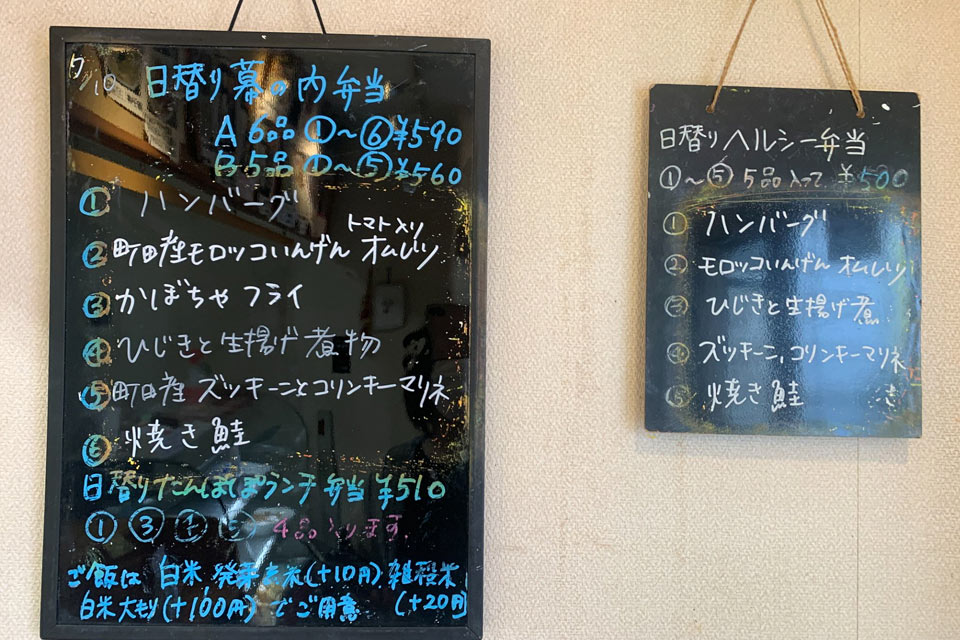 7/10 日替り幕の内弁当
A 6品 ①〜⑥ ¥590
B 5品 ①〜⑤ ¥560
① ハンバーグ
トマト入り
② 町田産モロッコいんげん オムレツ
③ かぼちゃフライ
④ ひじきと生揚げ煮物
⑤ 町田産 ズッキーニとコリンキーマリネ
⑥ 焼き鮭
日替りたんぽぽランチ弁当 ¥510
① ③ ④ ⑤ 4品入ります.
ご飯は 白米, 発芽玄米(+10円) 雑穀米
白米大もり(+100円) でご用意 (+20円)
日替り ヘルシー弁当
①〜⑤ 5品 入って ¥500
① ハンバーグ
② モロッコいんげん オムレツ
③ ひじきと生揚げ煮
④ ズッキーニ, コリンキーマリネ
⑤ 焼き鮭